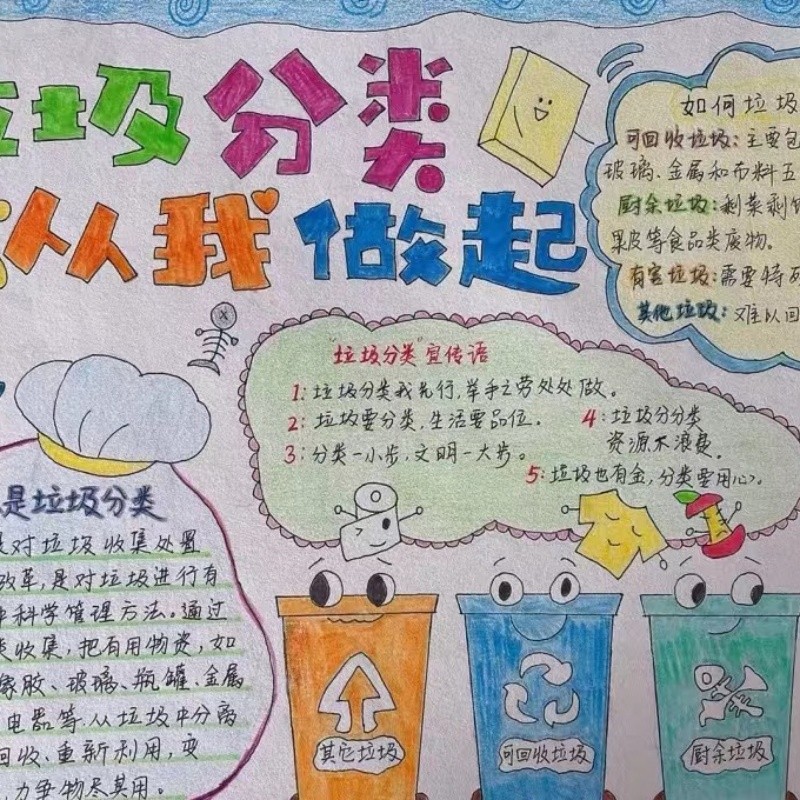 垃圾分类
人人我做起
如何垃圾
可回收垃圾:主要包
玻璃、金属和布料五
厨余垃圾:剩菜剩饭
果皮等食品类废物。
有害垃圾:需要特殊
其他垃圾:难以回
"垃圾分类"宣传语
1:垃圾分类我先行,举手之劳处处做。
2:垃圾要分类,生活要品位。
3:分类一小步,文明一大步。
4:垃圾分分类
资源不浪费。
5:垃圾也有金,分类要用心。
是垃圾分类
是对垃圾收集处置
改革,是对垃圾进行有
科学管理方法。通过
类收集,把有用物资,如
橡胶、玻璃、瓶罐、金属
电器等从垃圾中分离
回收、重新利用,变
力争物尽其用。
其它垃圾
可回收垃圾
厨余垃圾